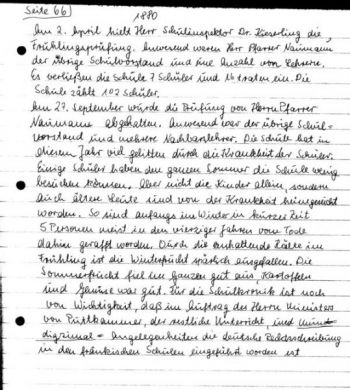 Seite 66)
1880
Am 2. April hielt Herr Schulinspektor Dr. Kieserling die
Frühlingsprüfung. Anwesend waren Herr Pfarrer Naumann
der übrige Schulvorstand und eine Anzahl von Lehrern.
Es verließen die Schule 7 Schüler und 16 traten ein. Die
Schule zählt 102 Schüler.
Am 27. September wurde die Prüfung von Herrn Pfarrer
Naumann abgehalten. Anwesend war der übrige Schul=
vorstand und mehrere Nachbarlehrer. Die Schule hat in
diesem Jahr viel gelitten durch die Krankheit der Schüler.
Einige Schüler haben den ganzen Sommer die Schule wenig
besuchen können. Aber nicht die Kinder allein, sondern
auch ältere Leute sind von der Krankheit heimgesucht
worden. So sind anfangs im Winter in kurzer Zeit
5 Personen meist in den vierziger Jahren vom Tode
dahin gerafft worden. Durch die anhaltende Kälte im
Frühling ist die Winterfrucht spärlich ausgefallen. Die
Sommerfrucht fiel im Ganzen gut aus, Kartoffeln
und Gemüse war gut. Für die Schulchronik ist noch
von Wichtigkeit, daß im Auftrag des Herrn Ministers
von Puttkammer, der restliche Unterricht, und
= Angelegenheiten die deutsche Rechtsschreibung
in den fränkischen Schulen eingeführt worden ist